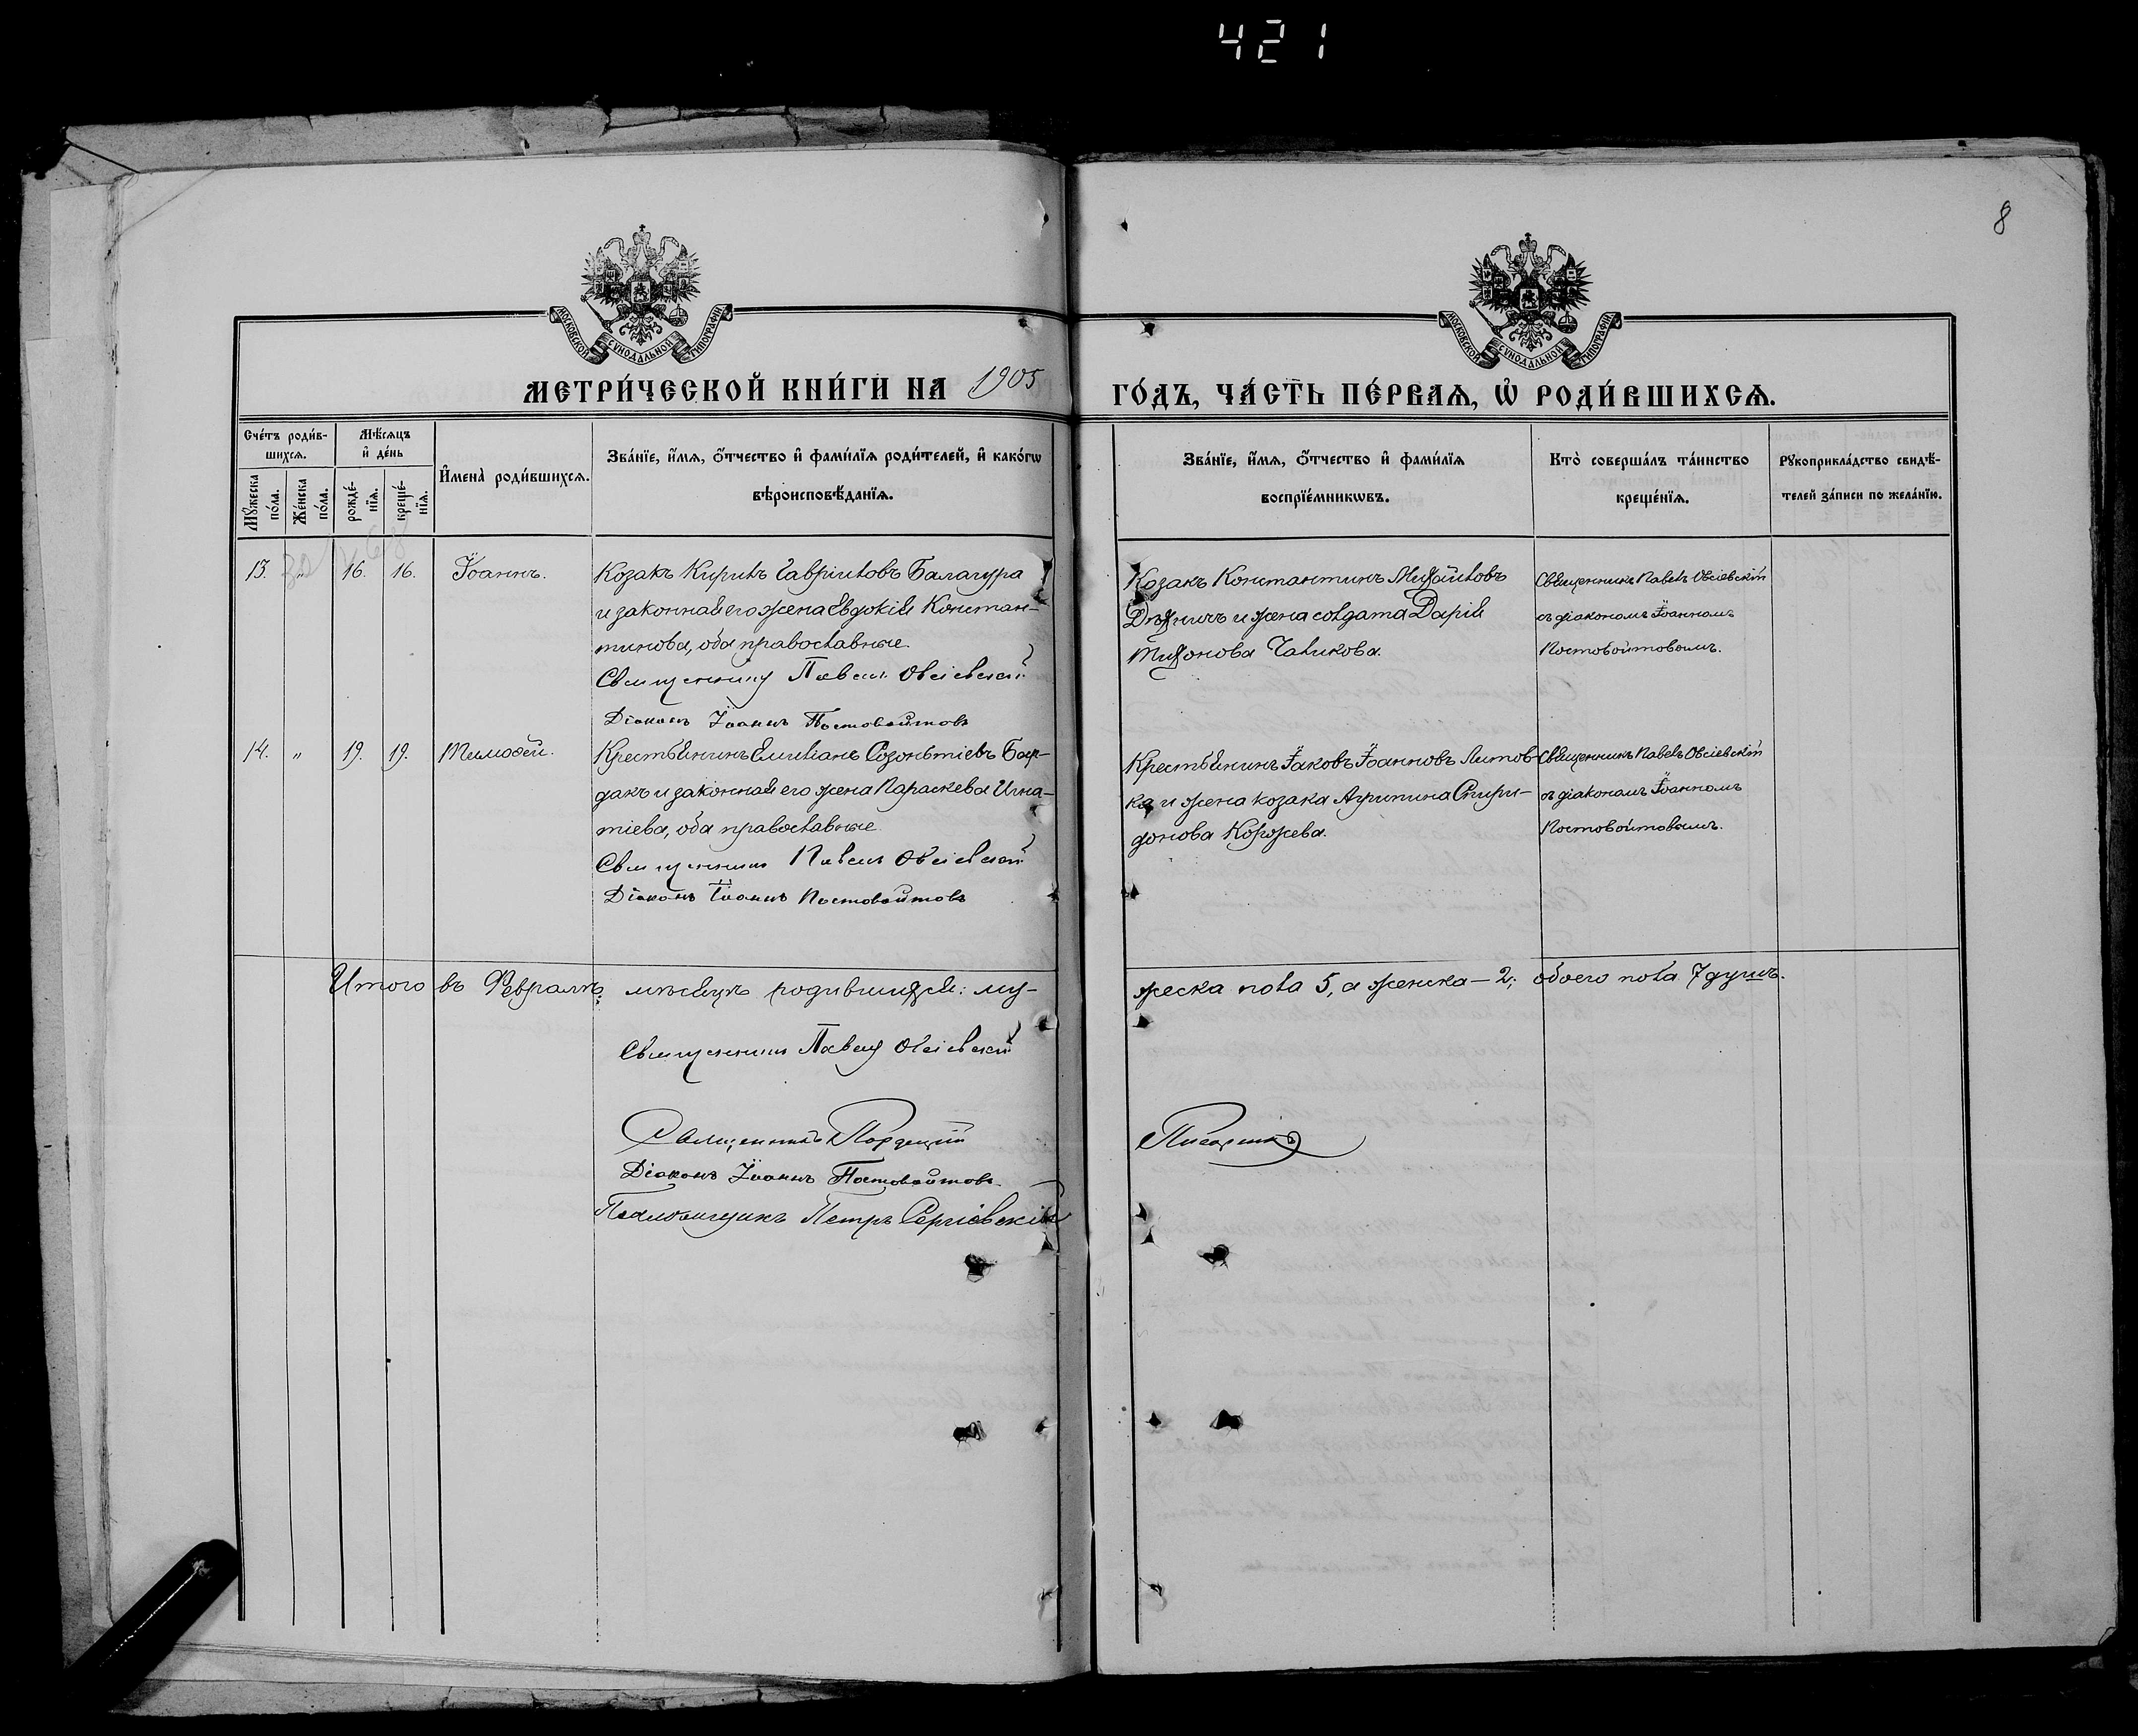 421
8
МОСКОВСКОЙ СѴНОДАЛЬНОЙ ТИПОГРАФІИ
МОСКОВСКОЙ СѴНОДАЛЬНОЙ ТИПОГРАФІИ
МЕТРИ́ЧЕСКОЙ КНИ́ГИ НА 1905 ГО́ДЪ, ЧА́СТЬ ПЕ́РВАѦ, Ѡ҆ РОДИ́ВШИХСѦ.
Сче́тъ роди́в-
шихсѧ.
Мѣ́сѧцъ
и҆ де́нь
Мꙋ́жеска
по́ла.
Же́нска
по́ла.
рожде́-
нїѧ.
креще́-
нїѧ.
И҆мена̀ роди́вшихсѧ.
Зва́нїе, и҆́мѧ, ѻ҆́тчество и҆ фами́лїѧ роди́телей, и҆ како́гѡ
вѣроисповѣ́данїѧ.
Зва́нїе, и҆́мѧ, ѻ҆́тчество и҆ фами́лїѧ
воспрїе́мникѡвъ.
Кто̀ соверша́лъ та́инство
креще́нїѧ.
Рꙋкоприкла́дство свидѣ́-
телей за́писи по жела́нїю.
13. " 16. 16. Іоаннъ.
Козакъ Кирилъ Гавріиловъ Балагура
и законная его жена Евдокія Констан-
тинова, оба православные.
Священникъ Павелъ Овсіевскій
Діаконъ Іоаннъ Постовойтовъ
Козакъ Константинъ Михайловъ
Дѣхничъ и жена солдата Дарія
Тихонова Чаликова.
Священникъ Павелъ Овсіевскій
съ діакономъ Іоанномъ
Постовойтовымъ.
14. " 19. 19. Тимофей.
Крестьянинъ Емиліанъ Созонтіевъ Бар-
дакъ и законная его жена Параскева Игна-
тіева, оба православные.
Священникъ Павелъ Овсіевскій
Діаконъ Іоаннъ Постовойтовъ
Крестьянинъ Іаковъ Іоанновъ Литов-
ка и жена козака Агрипина Спири-
донова Коржева.
Священникъ Павелъ Овсіевскій
съ діакономъ Іоанномъ
Постовойтовымъ.
Итого въ Февралѣ мѣсяцѣ родившихся: му-
жеска пола 5, а женска — 2; обоего пола 7 душъ.
Священникъ Павелъ Овсіевскій
Священникъ
Діаконъ Іоаннъ Постовойтовъ
Псаломщикъ Петръ Сергіевскій